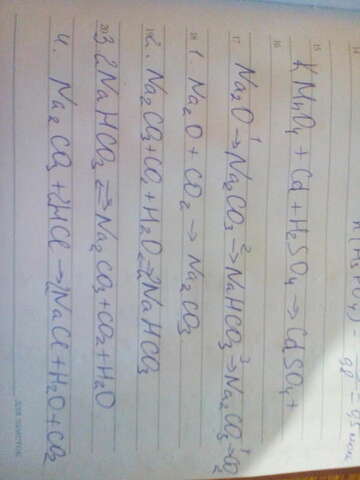 14
15
KMnO₄ + Cd + H₂SO₄ → CdSO₄ +
16
17
Na₂O →¹ Na₂CO₃ →² NaHCO₃ →³ Na₂CO₃ →⁴ CO₂
18
1. Na₂O + CO₂ → Na₂CO₃
19
2. Na₂CO₃ + CO₂ + H₂O → 2NaHCO₃
20
3. 2NaHCO₃ ⇄ Na₂CO₃ + CO₂ + H₂O
4. Na₂CO₃ + 2HCl → 2NaCl + H₂O + CO₂
ДЛЯ ЗАМЕТОК